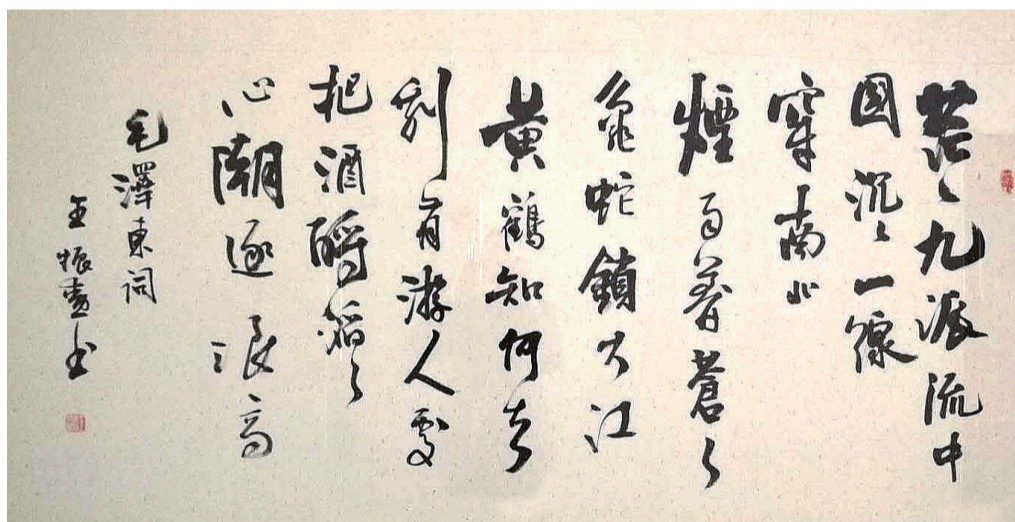 茫〻九派流中
国沉〻一線
穿南北
煙雨莽蒼〻
龜蛇鎖大江
黄鶴知何去
剩有游人處
把酒酹滔〻
心潮逐浪高
毛澤東词
王振书